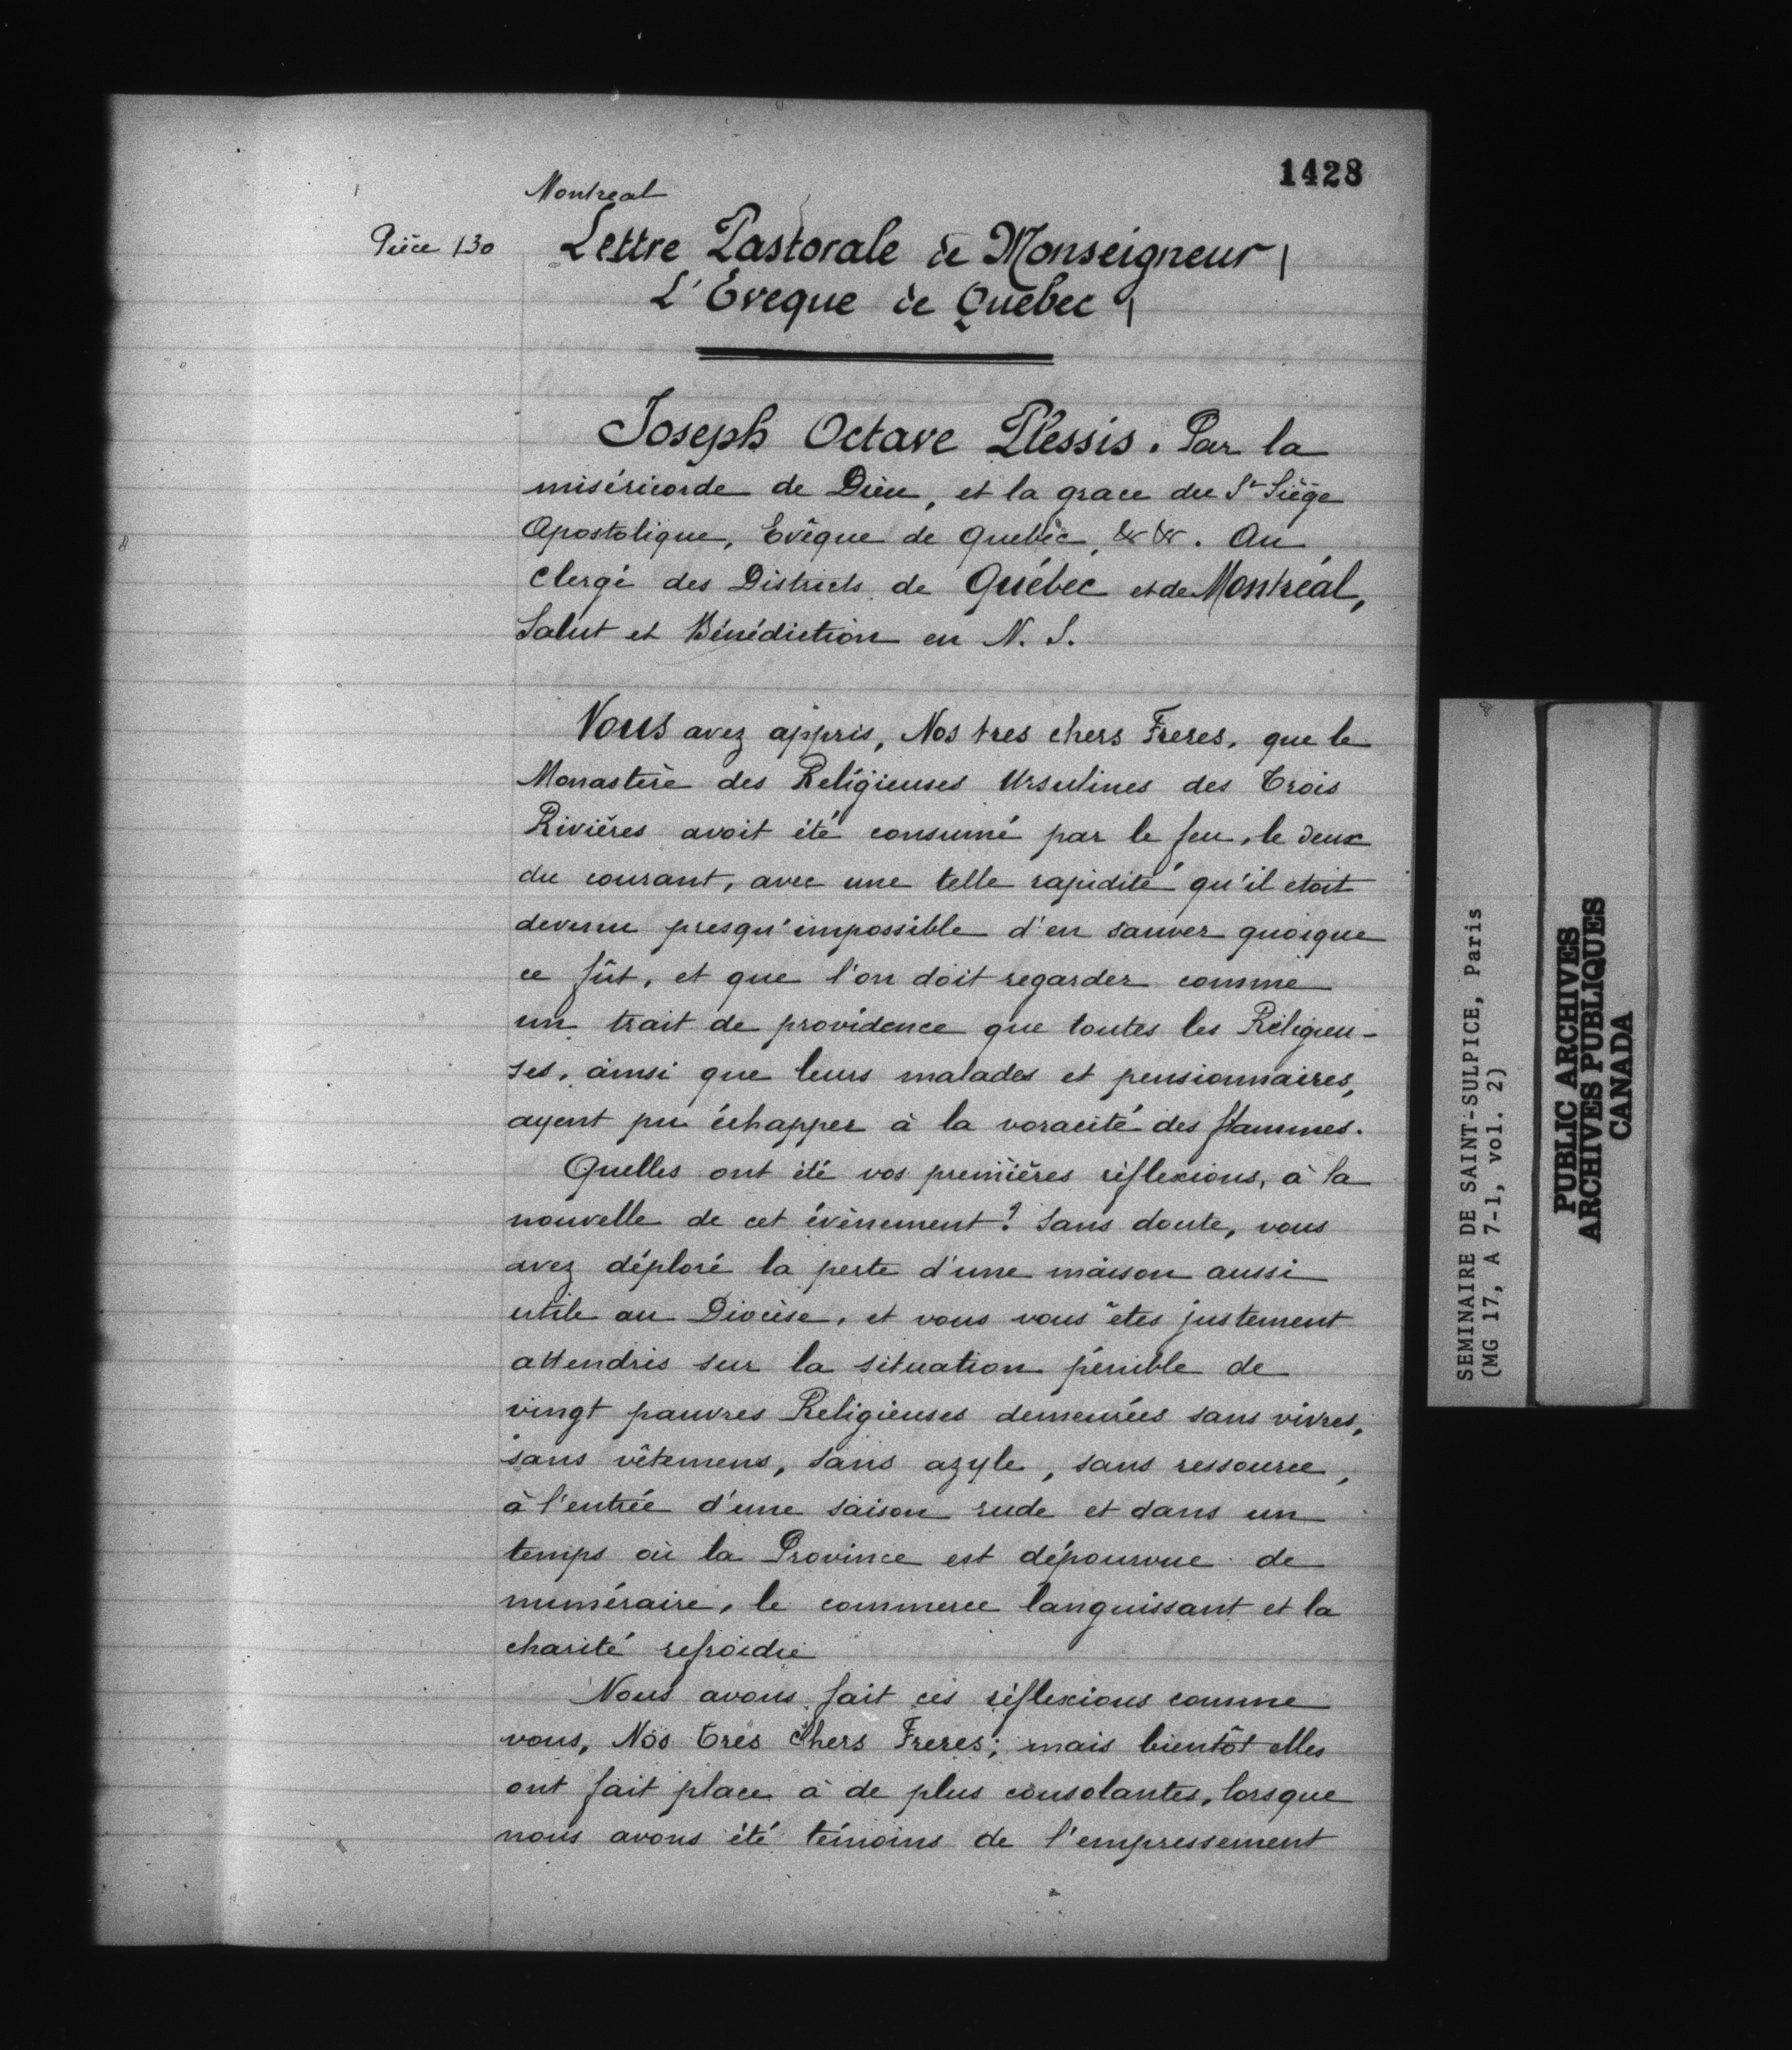 1428
Montreal
Pièce 130
Lettre Pastorale de Monseigneur
L'Eveque de Quebec
Joseph Octave Plessis. Par la
miséricorde de Dieu, et la grace du St Siège
Apostolique, Evêque de Quebèc, &c &c. Au
Clergé des Districts de Québec et de Montréal,
Salut et Bénédiction en N. S.
Vous avez appris, Nos tres chers Freres, que le
Monastère des Religieuses Ursulines des Trois
Rivières avoit été consumé par le feu, le deux
du courant, avec une telle rapidité qu'il etoit
devenu presqu'impossible d'en sauver quoique
ce fût, et que l'on doit regarder comme
un trait de providence que toutes les Religieu-
ses, ainsi que leurs malades et pensionnaires,
ayent pu échapper à la voracité des flammes.
Quelles ont été vos premières réflexions, à la
nouvelle de cet évènement? Sans doute, vous
avez déploré la perte d'une maison aussi
utile au Diocèse, et vous vous êtes justement
attendris sur la situation pénible de
vingt pauvres Religieuses demeurées sans vivres,
sans vêtemens, sans azyle, sans ressource,
à l'entrée d'une saison rude et dans un
temps où la Province est dépourvue de
numéraire, le commerce languissant et la
charité refroidie
Nous avons fait ces réflexions comme
vous, Nos Tres Chers Freres; mais bientôt elles
ont fait place à de plus consolantes, lorsque
nous avons été témoins de l'empressement
SEMINAIRE DE SAINT-SULPICE, Paris
(MG 17, A 7-1, vol. 2)
PUBLIC ARCHIVES
ARCHIVES PUBLIQUES
CANADA